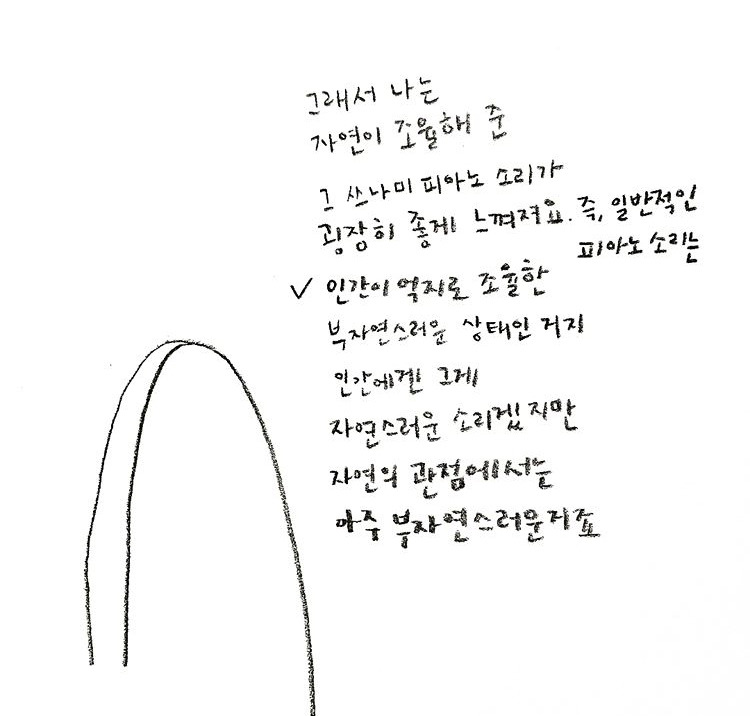 그래서 나는
자연이 조율해 준
그 쓰나미 피아노 소리가
굉장히 좋게 느껴져요. 즉, 일반적인
피아노 소리는
✓ 인간이 억지로 조율한
부자연스러운 상태인 거지
인간에겐 그게
자연스러운 소리겠지만
자연의 관점에서는
아주 부자연스러운거죠